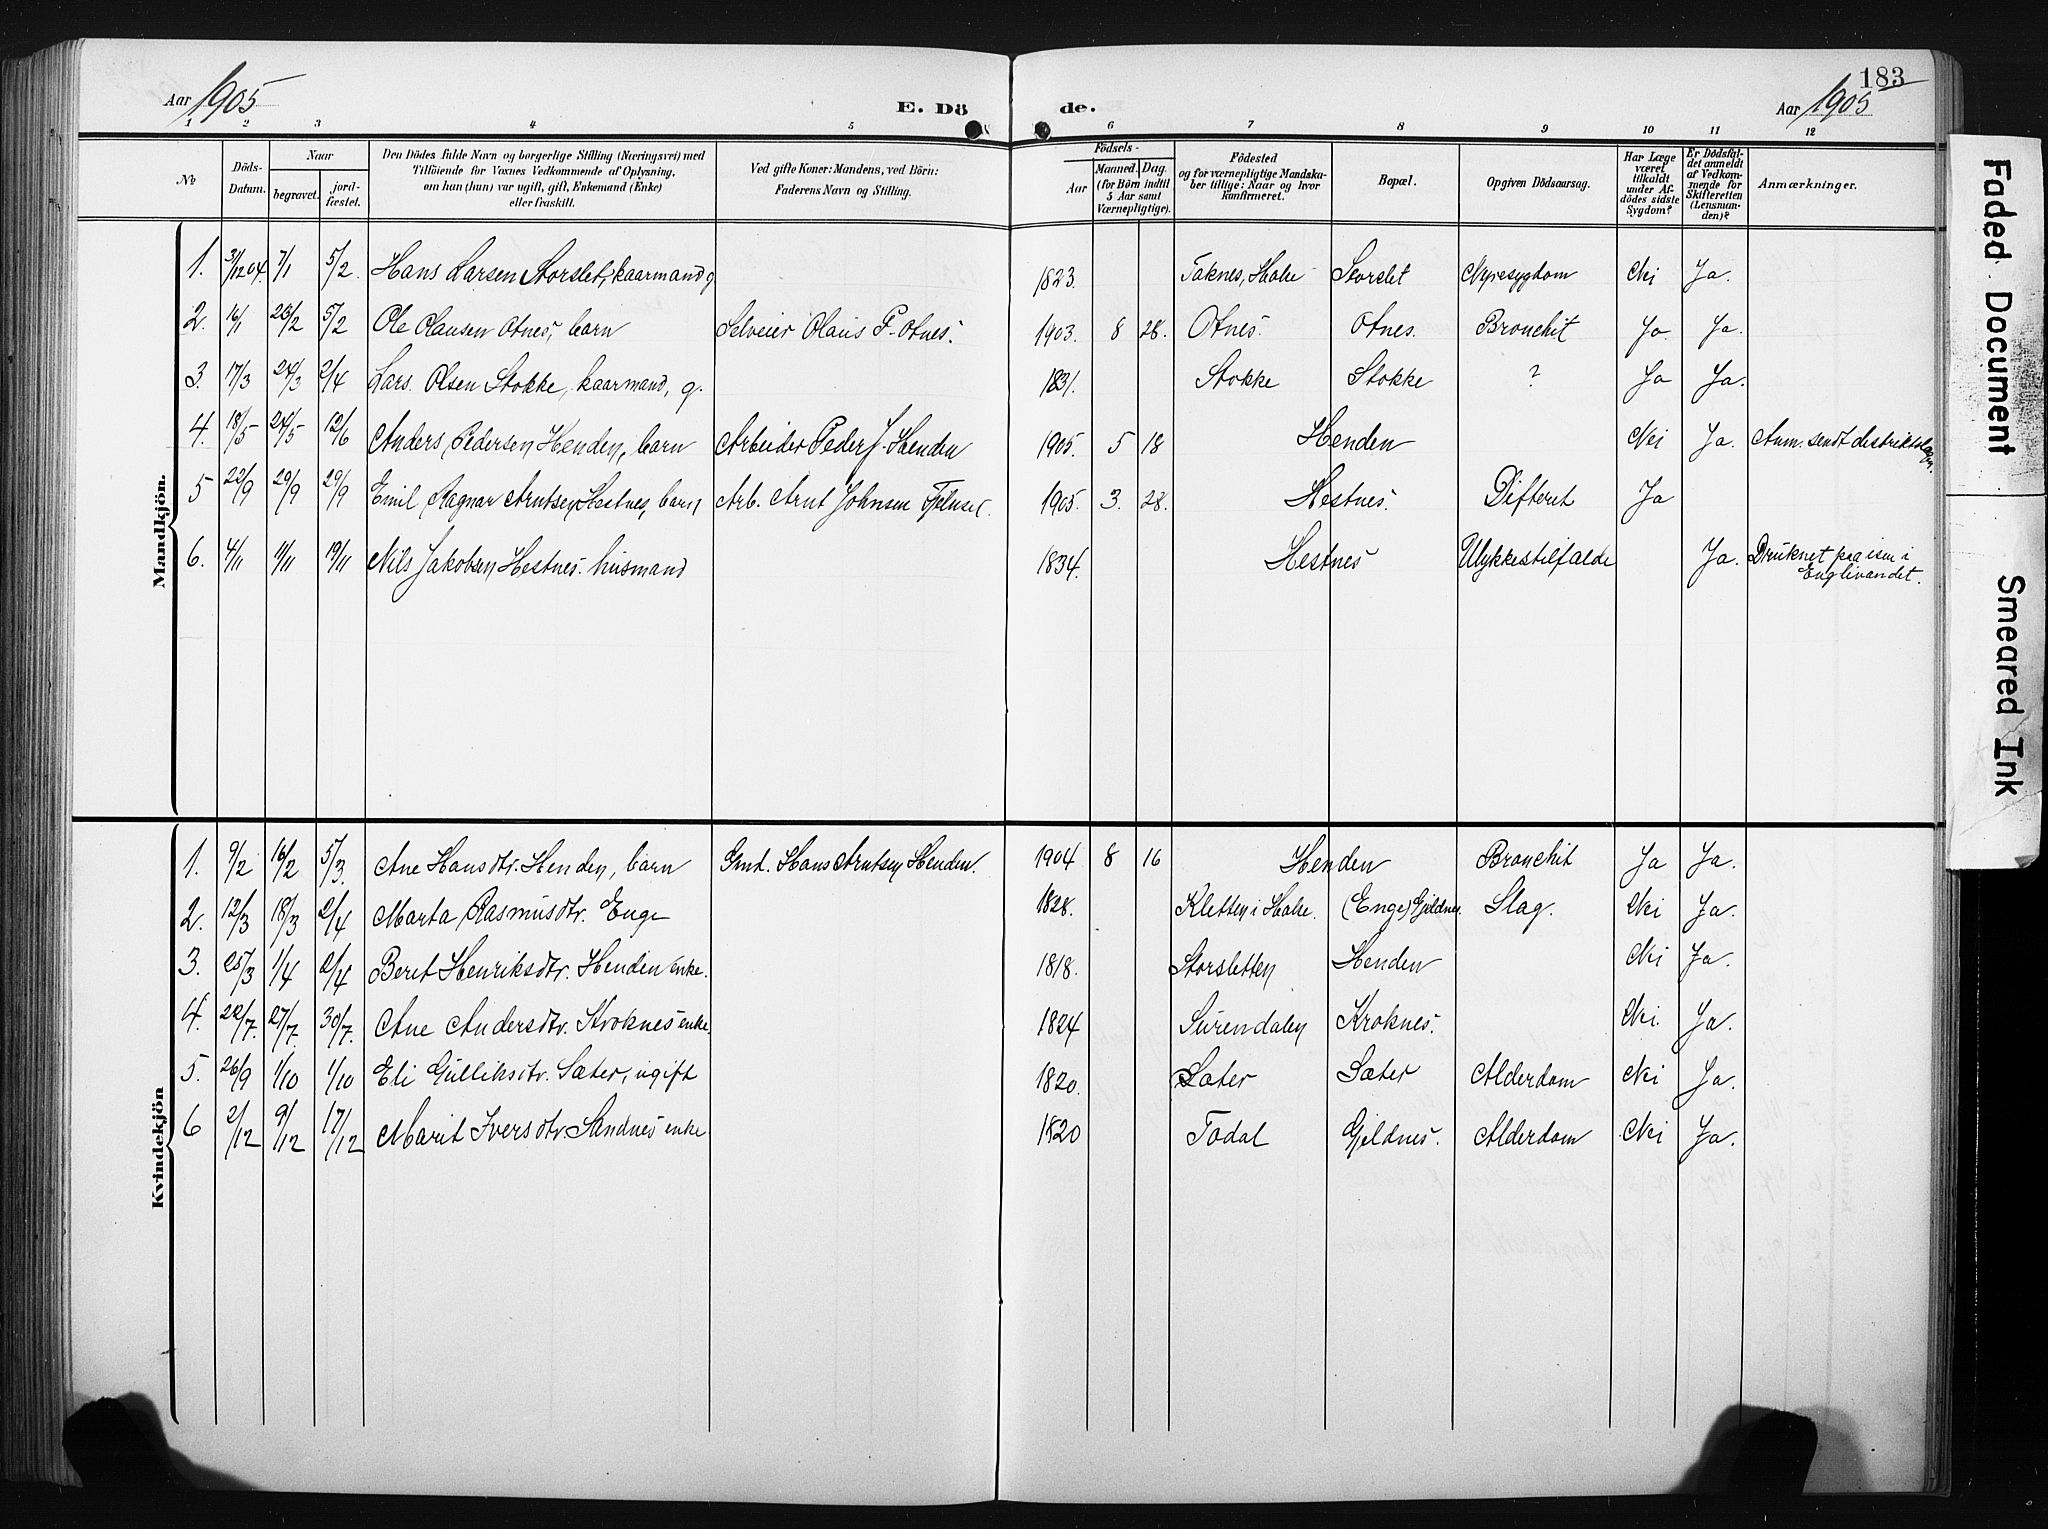 183
Aar 1905 E. Dö de. Aar 1905
1 2 3 4 5 6 7 8 9 10 11 12
No Döds-Datum. Naar begravet. jordfæstet. Den Dödes fulde Navn og borgerlige Stilling (Næringsvei) med Tilföiende for Voxnes Vedkommende af Oplysning, om han (hun) var ugift, gift, Enkemand (Enke) eller fraskilt. Ved gifte Koner: Mandens, ved Börn: Faderens Navn og Stilling. Födsels- Aar Maaned. Dag. (for Börn indtil 5 Aar samt Værnepligtige). Födested og for værnepligtige Mandskaber tillige: Naar og hvor konfirmeret. Bopæl. Opgiven Dödsaarsag. Har Læge været tilkaldt under Afdödes sidste Sygdom? Er Dödsfaldet anmeldt af Vedkommende for Skifteretten (Lensmanden)? Anmærkninger.
Mandkjön.
1. 31/12 04. 7/1 5/2 Hans Larsen Storslet, kaarmand g 1823. Taknes, Halse Storslet Nyresygdom Nei Ja.
2. 16/1 23/2 5/2 Ole Olausen Otnes, barn Selveier Olaus P. Otnes. 1903. 8 28. Otnes. Otnes. Bronchit Ja Ja.
3. 17/3 24/3 2/4 Lars Olsen Stokke, kaarmand, g. 1831. Stokke Stokke ? Ja Ja.
4. 18/5 24/5 12/6 Anders Pedersen Henden, barn Arbeider Peder J. Henden 1905. 5 18 Henden Nei Ja. Anm. sendt distriktslægen.
5 22/9 29/9 29/9 Emil Ragnar Arntsen Hestnes, barn Arb. Arnt Johnsen 1905. 3. 28. Hestnes. Difterit Ja
6. 4/11 11/11 19/11 Nils Jakobsen Hestnes. husmand 1834. Hestnes Ulykkestilfælde Ja. Druknet paa isen i
Englivandet.
Kvindekjön
1. 9/2 16/2 5/3. Ane Hansdtr. Henden, barn Gmd. Hans Arntsen Henden. 1904 8 16 Henden Bronchit Ja Ja.
2. 12/3 18/3 2/4 Marta Rasmusdtr. Enge 1828. Kletten i Halse. (Enge) Gjeldnes. Slag. Nei Ja.
3. 25/3 1/4 2/4 Beret Henriksdtr. Henden enke. 1818. Storsletten Henden Nei Ja.
4. 22/7. 27/7. 30/7. Ane Andersdtr. Kroknes enke 1824 Surendalen Kroknes. Nei. Ja.
5. 26/9 1/10 1/10 Eli Gulliksdtr. Sæter, ugift 1820. Sæter Sæter Alderdom Nei Ja.
6 2/12 9/12 17/12 Marit Iversdtr Sandnes enke 1820 Todal Gjeldnes. Alderdom Nei Ja.
Faded Document
Smeared Ink